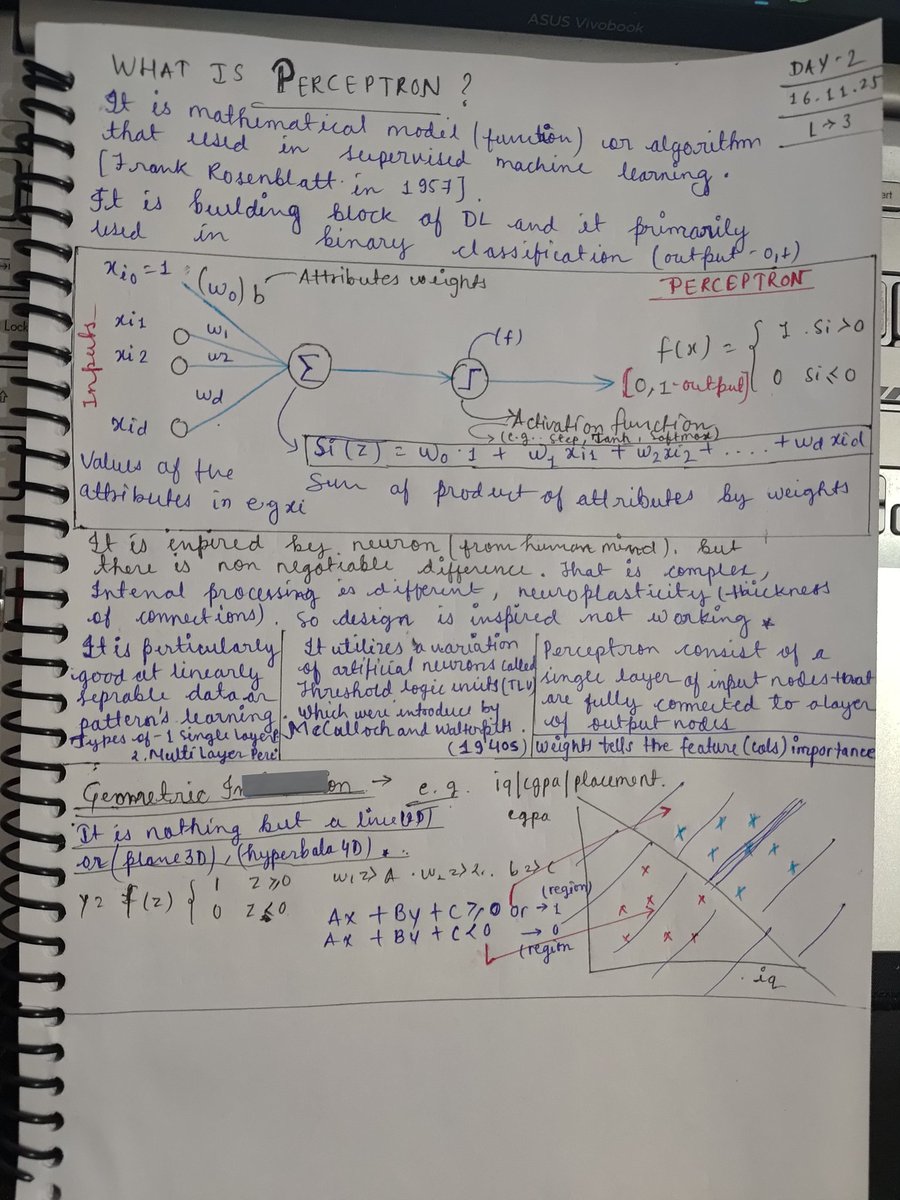 ASUS Vivobook
WHAT IS PERCEPTRON ?
DAY-2
16.11.25
L→3
It is mathematical model (function) or algorithm
that used in supervised machine learning.
[Frank Rosenblatt in 1957].
It is building block of DL and it primarily
used in binary classification (output - 0,1)
xi0 = 1 (w0) b Attributes weights
PERCEPTRON
Inputs
xi1 w1
xi2 w2
wd
xid
Σ
(f)
f(x) = { 1 . Si > 0
0 Si ≤ 0
[0,1-output]
Activation function
→ (e.g.. Step, Tanh, Softmax)
Si (z) = w0 · 1 + w1 xi1 + w2 xi2 + .... + wd xid
Values of the
attributes in e.g xi
Sum of product of attributes by weights
It is inpired by neuron (from human mind). but
there is non negotiable difference. That is complex,
Intenal processing is different, neuroplasticity (thickness
of connections). So design is inspired not working *
It is perticularly
good at linearly
seprable data or
pattern's learning.
Types of - 1 Single Layer
2. Multi Layer Per
It utilizes a variation
of artificial neurons called
Threshold logic units (TLU)
which were introduce by
McCalloch and
(19'40s)
Perceptron consist of a
single layer of input nodes that
are fully connected to a layer
of output nodes
weight tells the feature (cols) importance
Geometric In on → e.g. iq/cgpa/placement.
It is nothing but a line (2D)
or (plane 3D), (hyperbala 4D) *
y = f(z) { 1 z ≥ 0
0 z < 0
w1 => A . w2 => b => C
Ax + By + C ≥ 0 or → 1 (region)
Ax + By + C < 0 → 0 (region
cgpa
iq